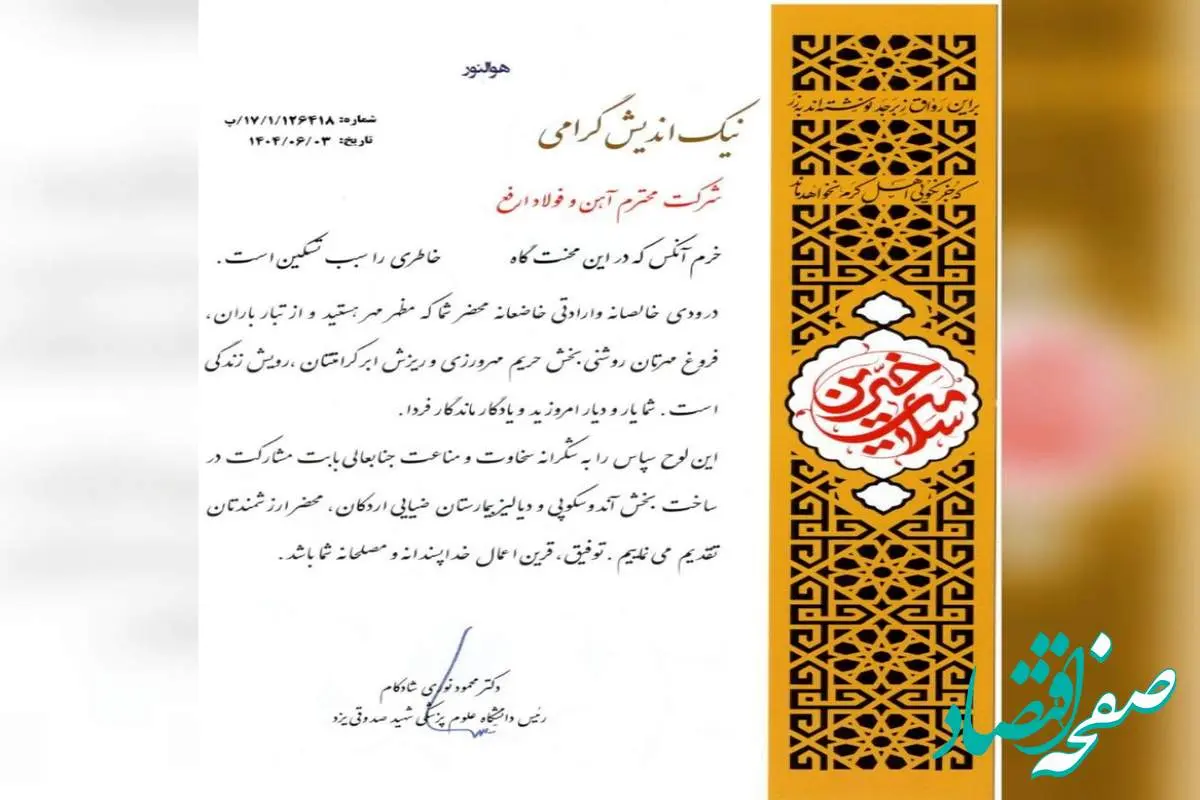 هوالنور
شماره: ۱۷/۱/۱۲۶۴۱۸/ب
تاریخ: ۱۴۰۴/۰۶/۰۳
نیک اندیش گرامی
شرکت محترم آهن و فولاد ارفع
خرم آنکس که در این محنت گاه خاطری را سبب تسکین است.
درودی خالصانه وارادتی خاضعانه محضر شما که مظهر مهر هستید و از تبار باران،
فروغ مهرتان روشنی بخش حریم مهرورزی و ریزش ابر کرامتتان، رویش زندگی
است. شما یار و دیار امروزید و یادگار ماندگار فردا.
این لوح سپاس را به شکرانه سخاوت و مناعت جنابعالی بابت مشارکت در
ساخت بخش آندوسکوپی و دیالیز بیمارستان ضیایی اردکان، محضر ارزشمندتان
تقدیم می نماییم. توفیق، قرین اعمال خداپسندانه و مصلحانه شما باشد.
دکتر محمود نوری شادکام
رئیس دانشگاه علوم پزشکی شهید صدوقی یزد
براین رواق زبرجد نوشته‌اند به زر
که جز نکوئی اهل کرم نخواهد ماند
خیرین سلامت
صفحه اقتصاد